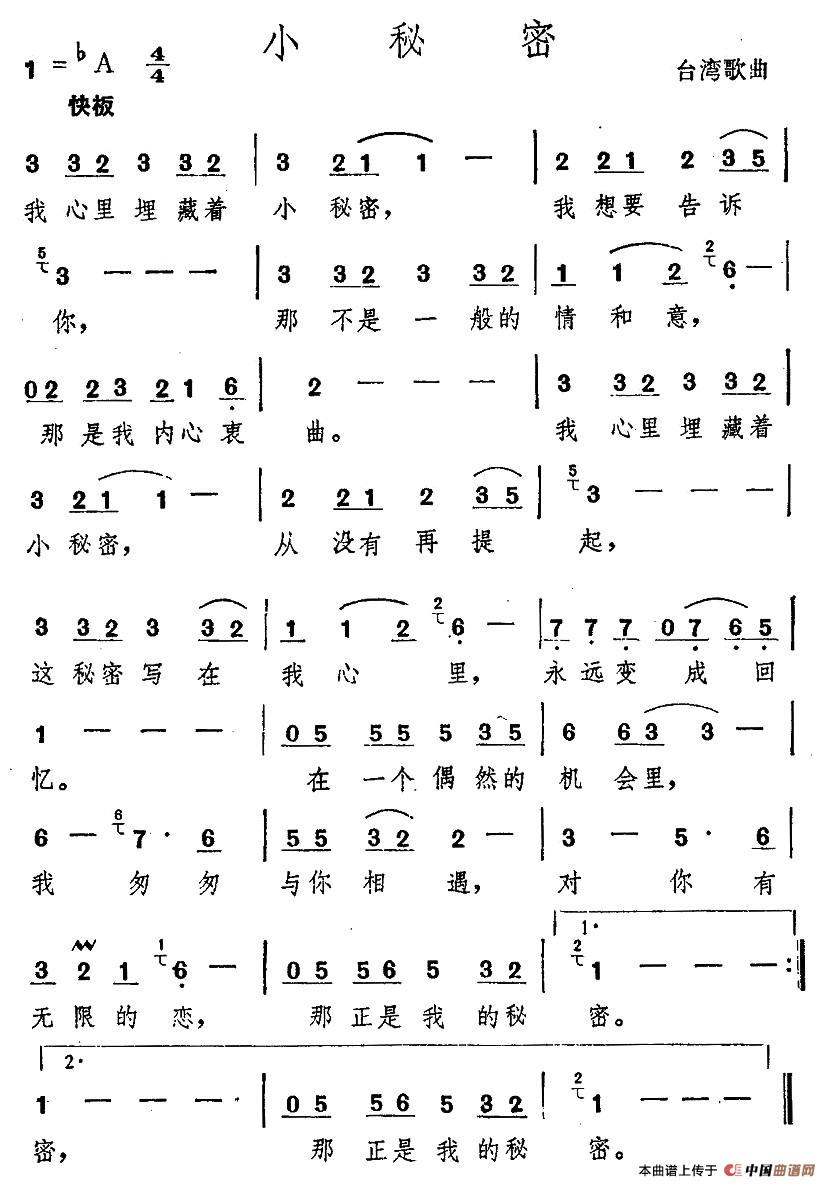 小 秘 密
1 = ♭A 4/4
台湾歌曲
快板
3 32 3 32 | 3 21 1 — | 2 21 2 35 |
我 心里 埋 藏着 小 秘密， 我 想要 告 诉
5 3 — — — | 3 32 3 32 | 1 1 2 2 6 — |
你， 那 不是 一 般的 情 和 意，
02 23 21 6 | 2 — — — | 3 32 3 32 |
那 是我 内心 衷 曲。 我 心里 埋 藏着
3 21 1 — | 2 21 2 35 | 5 3 — — — |
小 秘密， 从 没有 再 提 起，
3 32 3 32 | 1 1 2 2 6 — | 7 7 7 0 7 6 5 |
这 秘密 写 在 我 心 里， 永 远 变 成 回
1 — — — | 05 55 5 35 | 6 63 3 — |
忆。 在 一个 偶 然的 机 会里，
6 — 6 7 · 6 | 55 32 2 — | 3 — 5 · 6 |
我 匆 匆 与你 相 遇， 对 你 有
1·
3 2 1 1 6 — | 05 56 5 32 | 2 1 — — — :||
无 限 的 恋， 那 正是 我 的秘 密。
2·
1 — — — | 05 56 5 32 | 2 1 — — — ||
密， 那 正是 我 的秘 密。
本曲谱上传于 中国曲谱网